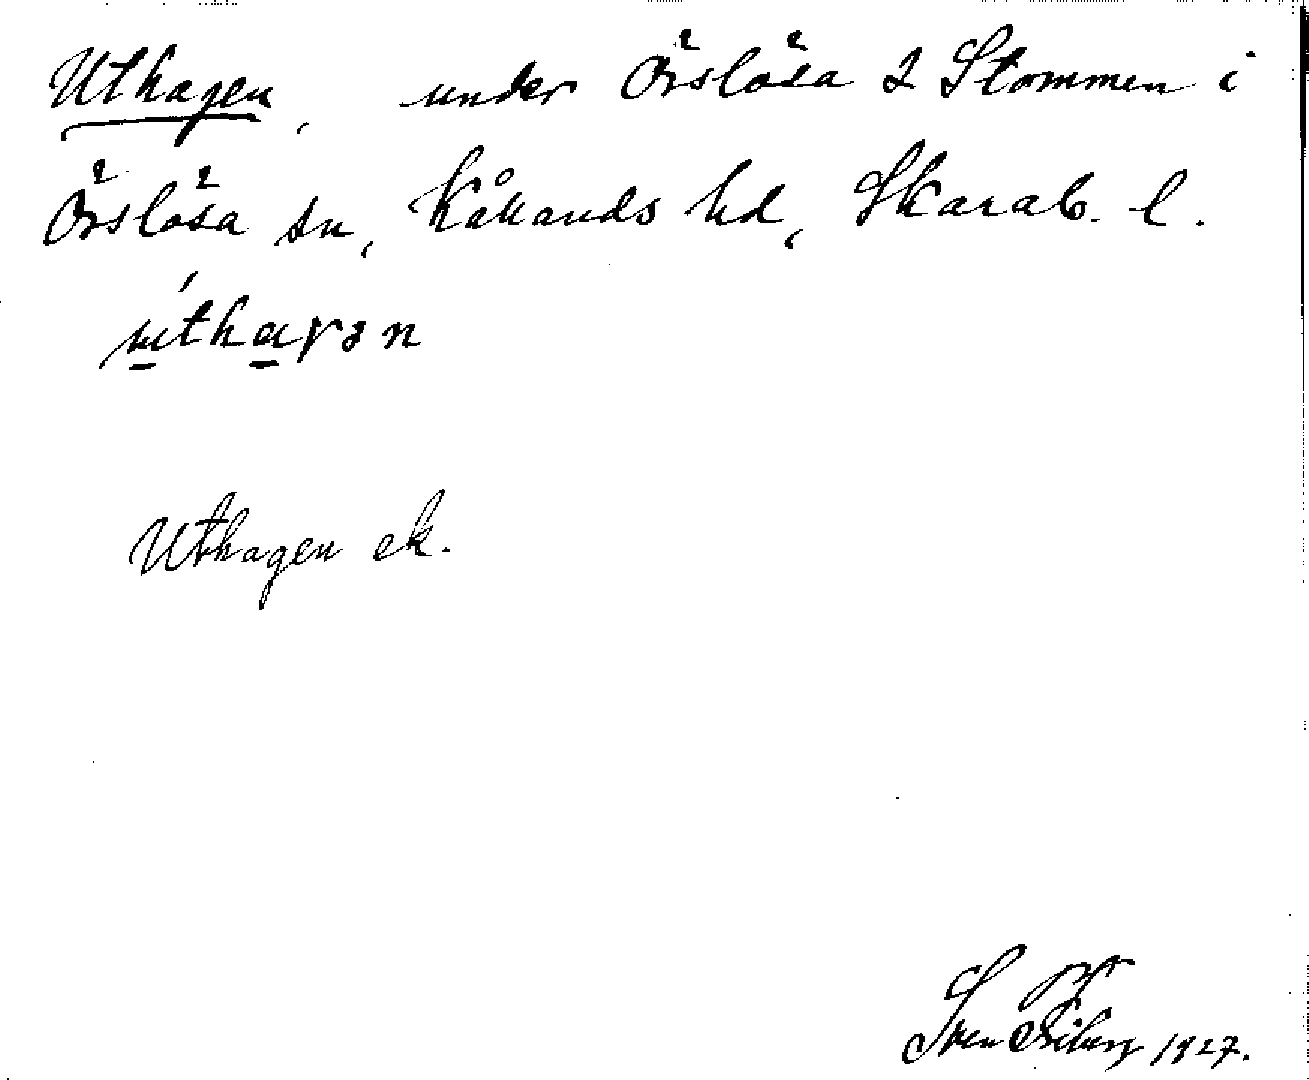 Uthagen, under Örslösa 2 Stommen i
Örslösa sn, Kållands hd, Skarab. l.
úthaγən
Uthagen ek.
Sven Friberg 1927.